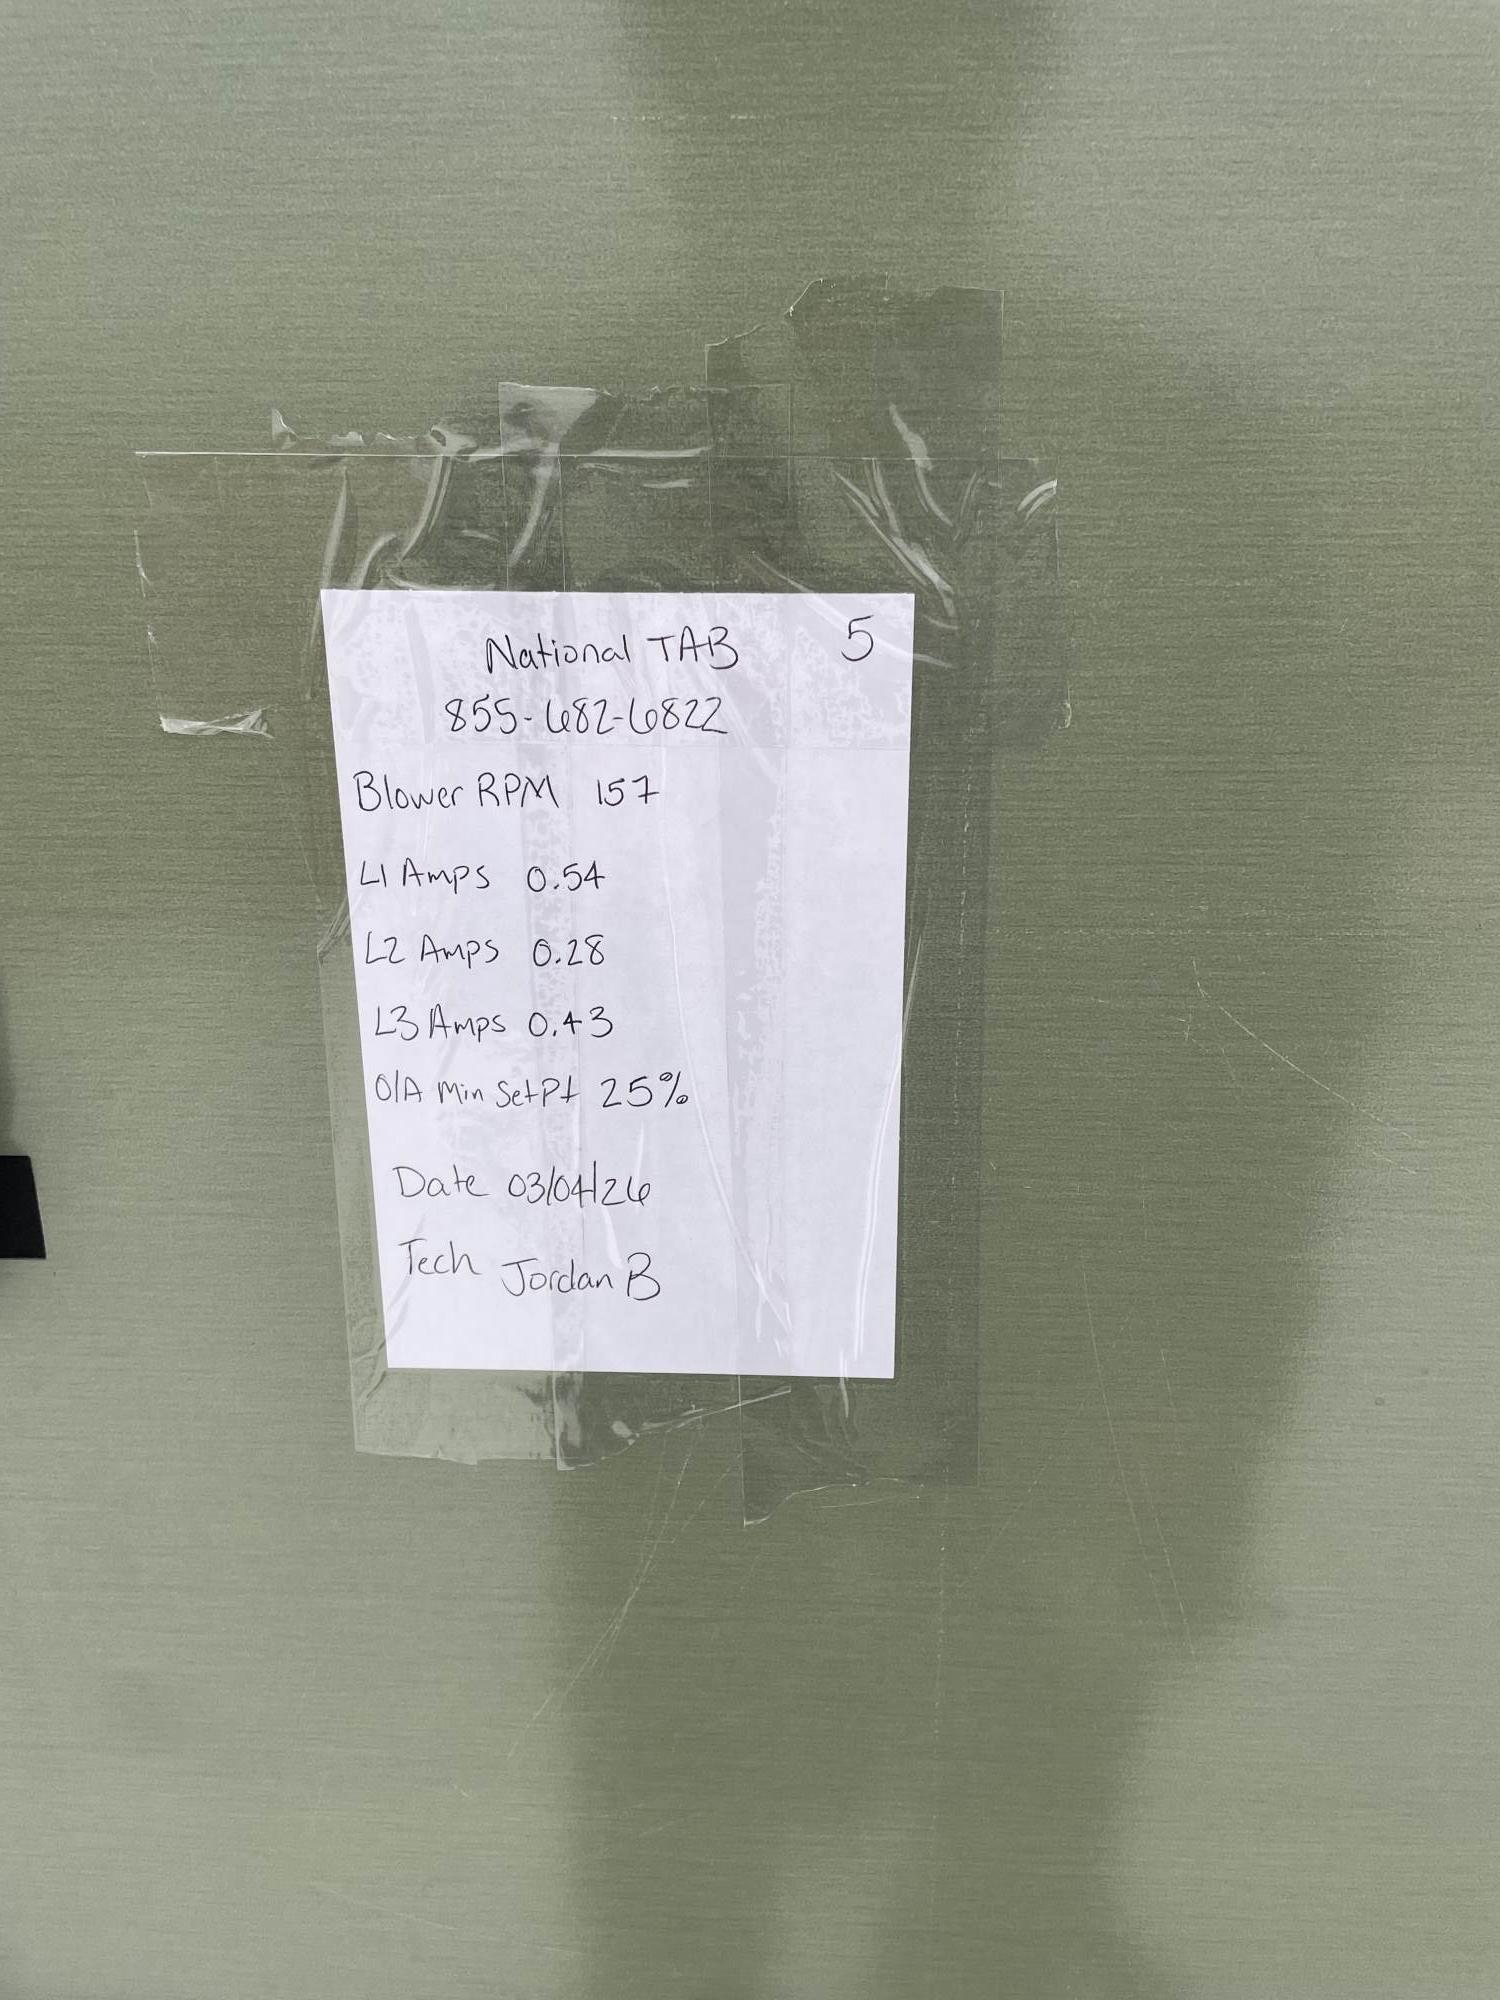 National TAB 5
855-682-6822
Blower RPM 157
L1 Amps 0.54
L2 Amps 0.28
L3 Amps 0.43
O/A Min SetPt 25%
Date 03/04/26
Tech Jordan B